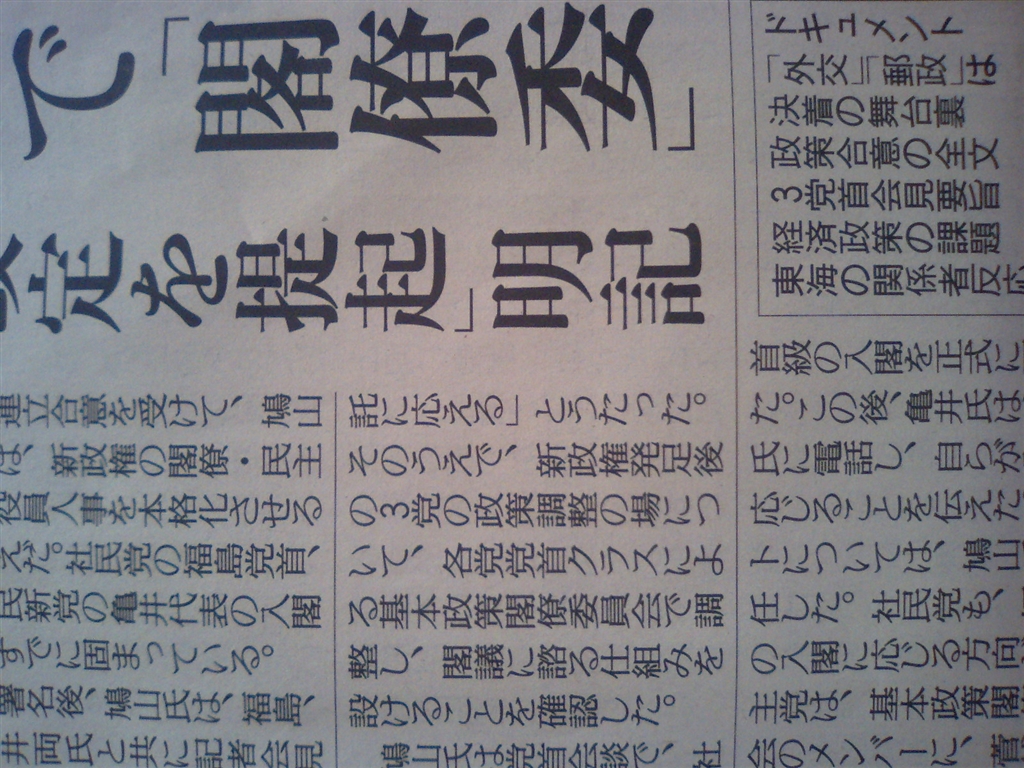 で「閣僚委」
定を提起」明記
ドキュメント
「外交」「郵政」は
決着の舞台裏
政策合意の全文
3党首会見要旨
経済政策の課題
東海の関係者反応
連立合意を受けて、鳩山
は、新政権の閣僚・民主
役員人事を本格化させる
えだ。社民党の福島党首、
民新党の亀井代表の入閣
すでに固まっている。
署名後、鳩山氏は、福島、
井両氏と共に記者会見
託に応える」とうたった。
そのうえで、新政権発足後
の3党の政策調整の場につ
いて、各党党首クラスによ
る基本政策閣僚委員会で調
整し、閣議に諮る仕組みを
設けることを確認した。
鳩山氏は党首会談で、社
首級の入閣を正式に
た。この後、亀井氏は
氏に電話し、自らが
応じることを伝えた
トについては、鳩山
任した。社民党も、
の入閣に応じる方向
主党は、基本政策閣
会のメンバーに、菅